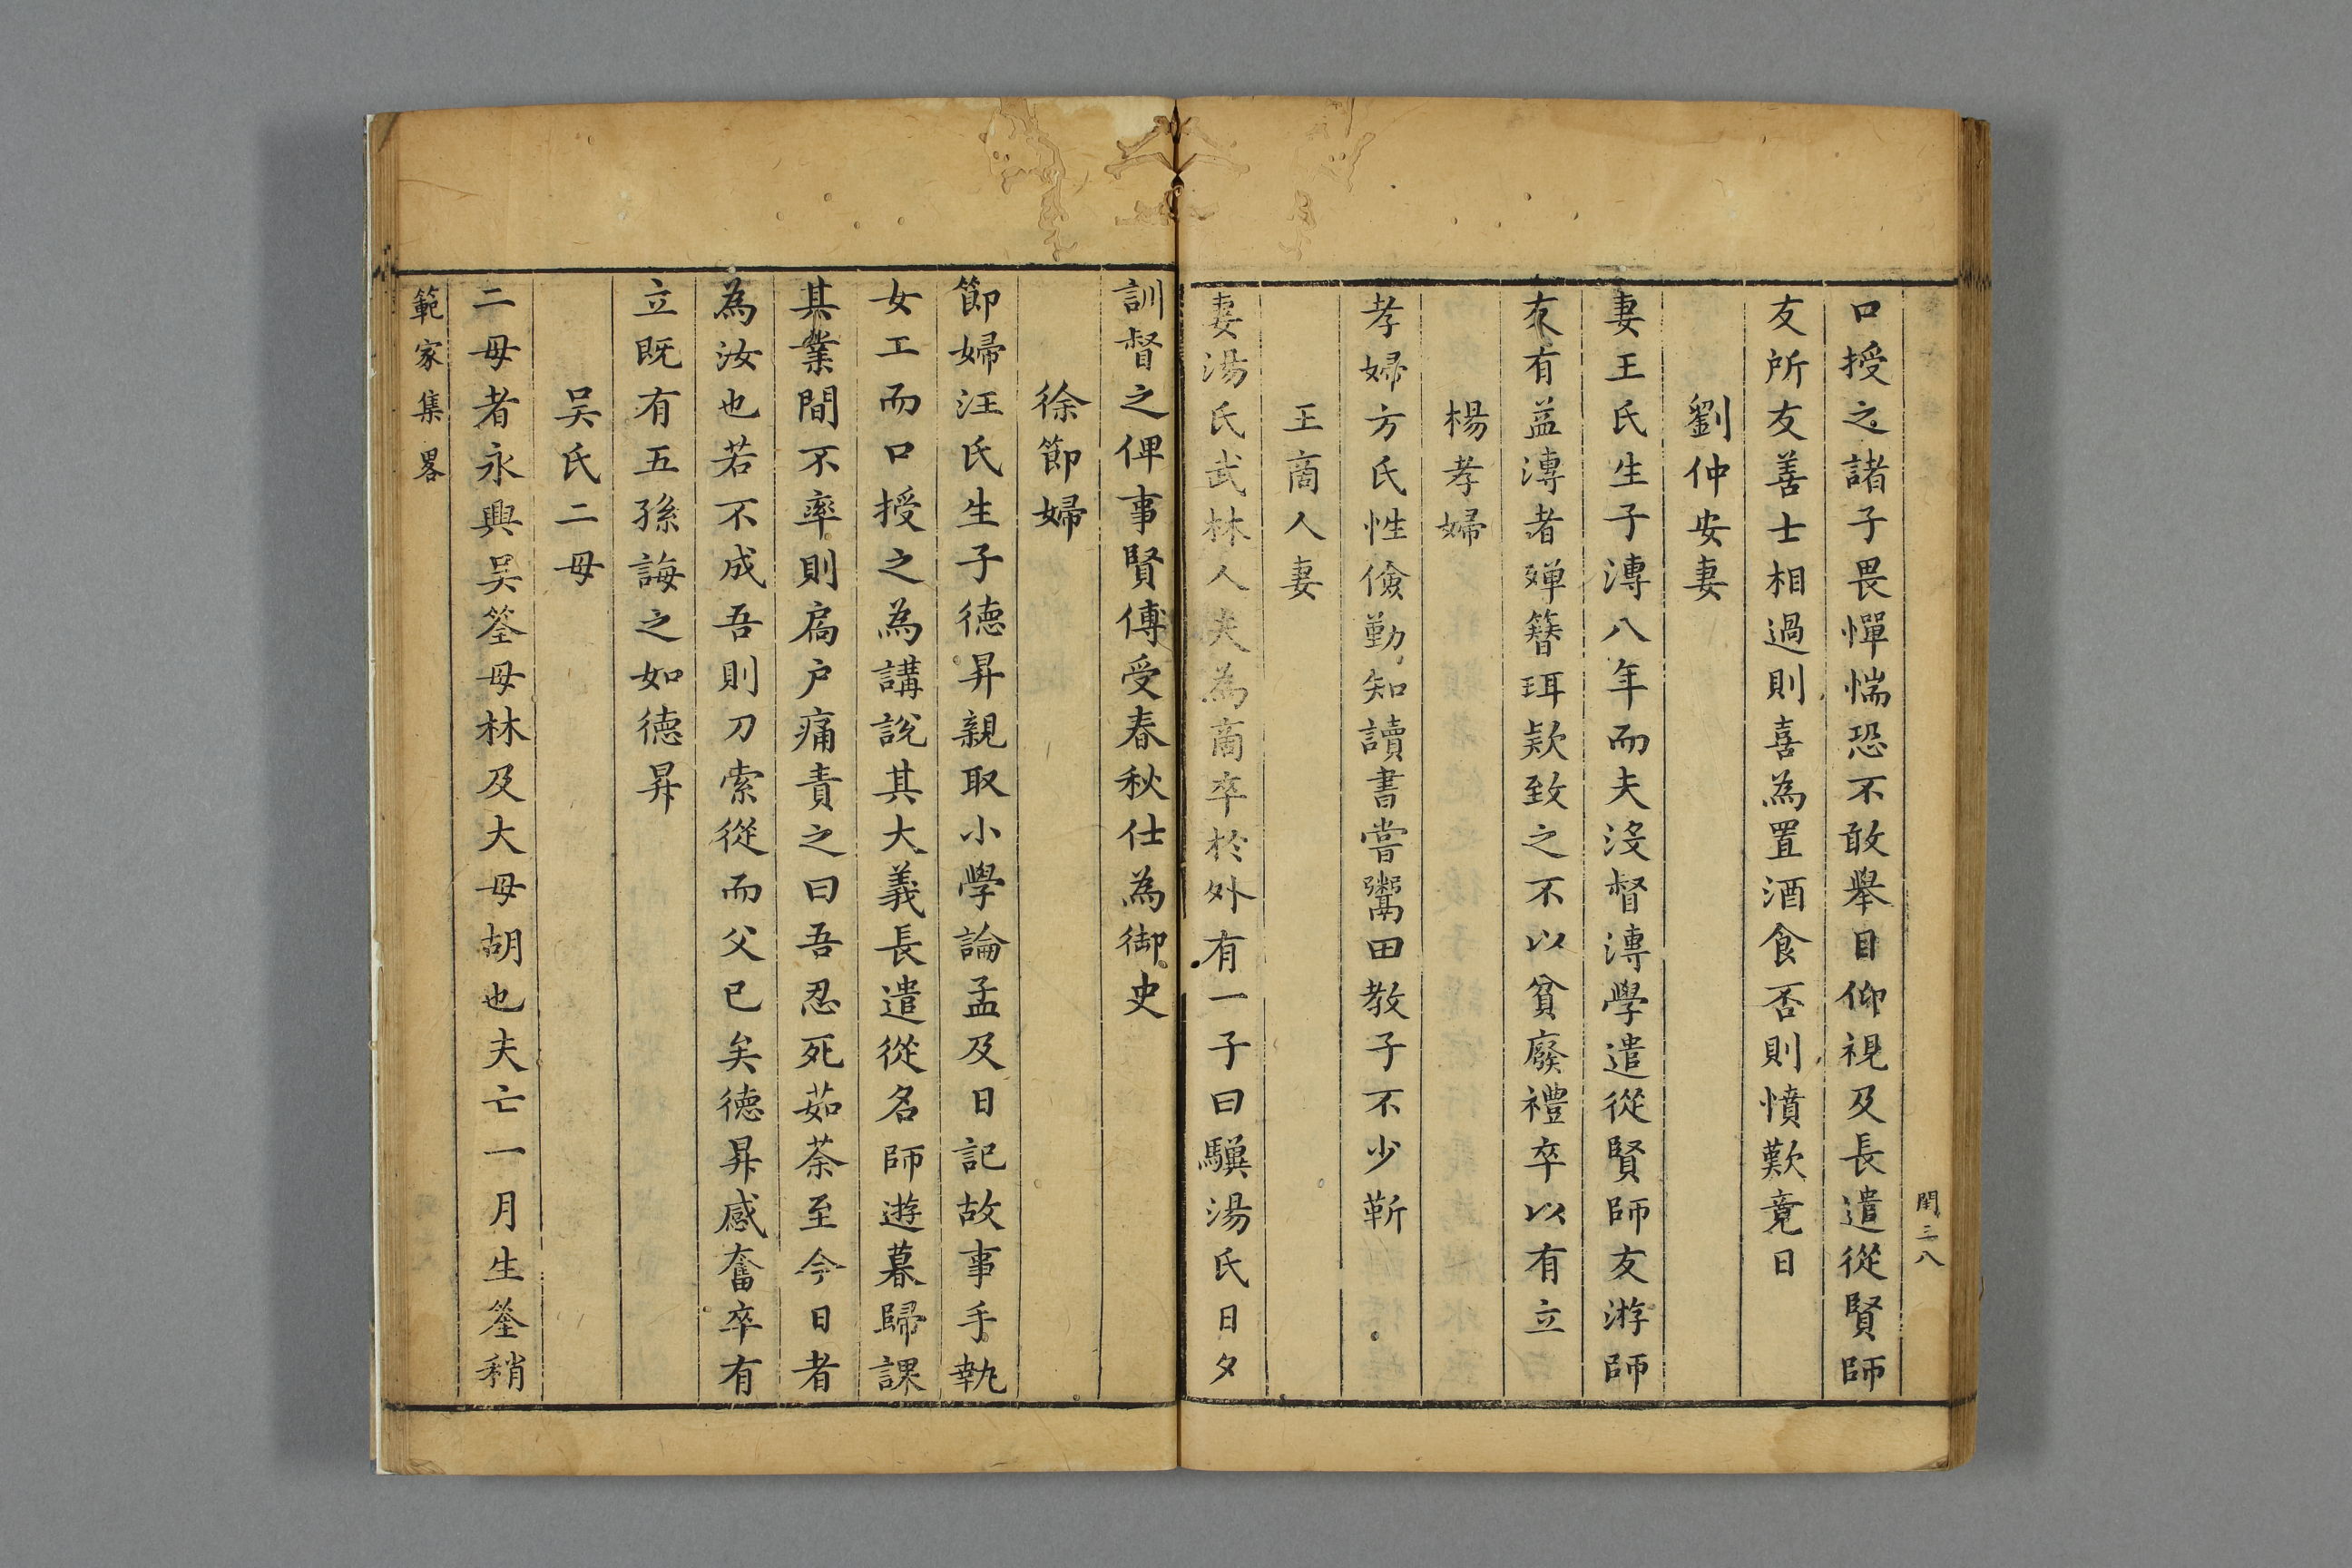 閑三八
口授之諸子畏憚惴恐不敢舉目仰視及長遣從賢師
友所友善士相過則喜為置酒食否則憤歎竟日
劉仲安妻
妻王氏生子漙八年而夫沒督漙學遣從賢師友游師
友有益漙者殫簪珥欵致之不以貧廢禮卒以有立
楊孝婦
孝婦方氏性儉勤知讀書嘗鬻田教子不少靳
王商人妻
妻湯氏武林人夫為商卒於外有一子曰驥湯氏日夕
訓督之俾事賢傅受春秋仕為御史
徐節婦
節婦汪氏生子德昇親取小學論孟及日記故事手執
女工而口授之為講說其大義長遣從名師遊暮歸課
其業間不率則扃户痛責之曰吾忍死茹荼至今日者
為汝也若不成吾則刀索從而父已矣德昇感奮卒有
立既有五孫誨之如德昇
吴氏二母
二母者永興吴筌母林及大母胡也夫亡一月生筌稍
範家集畧